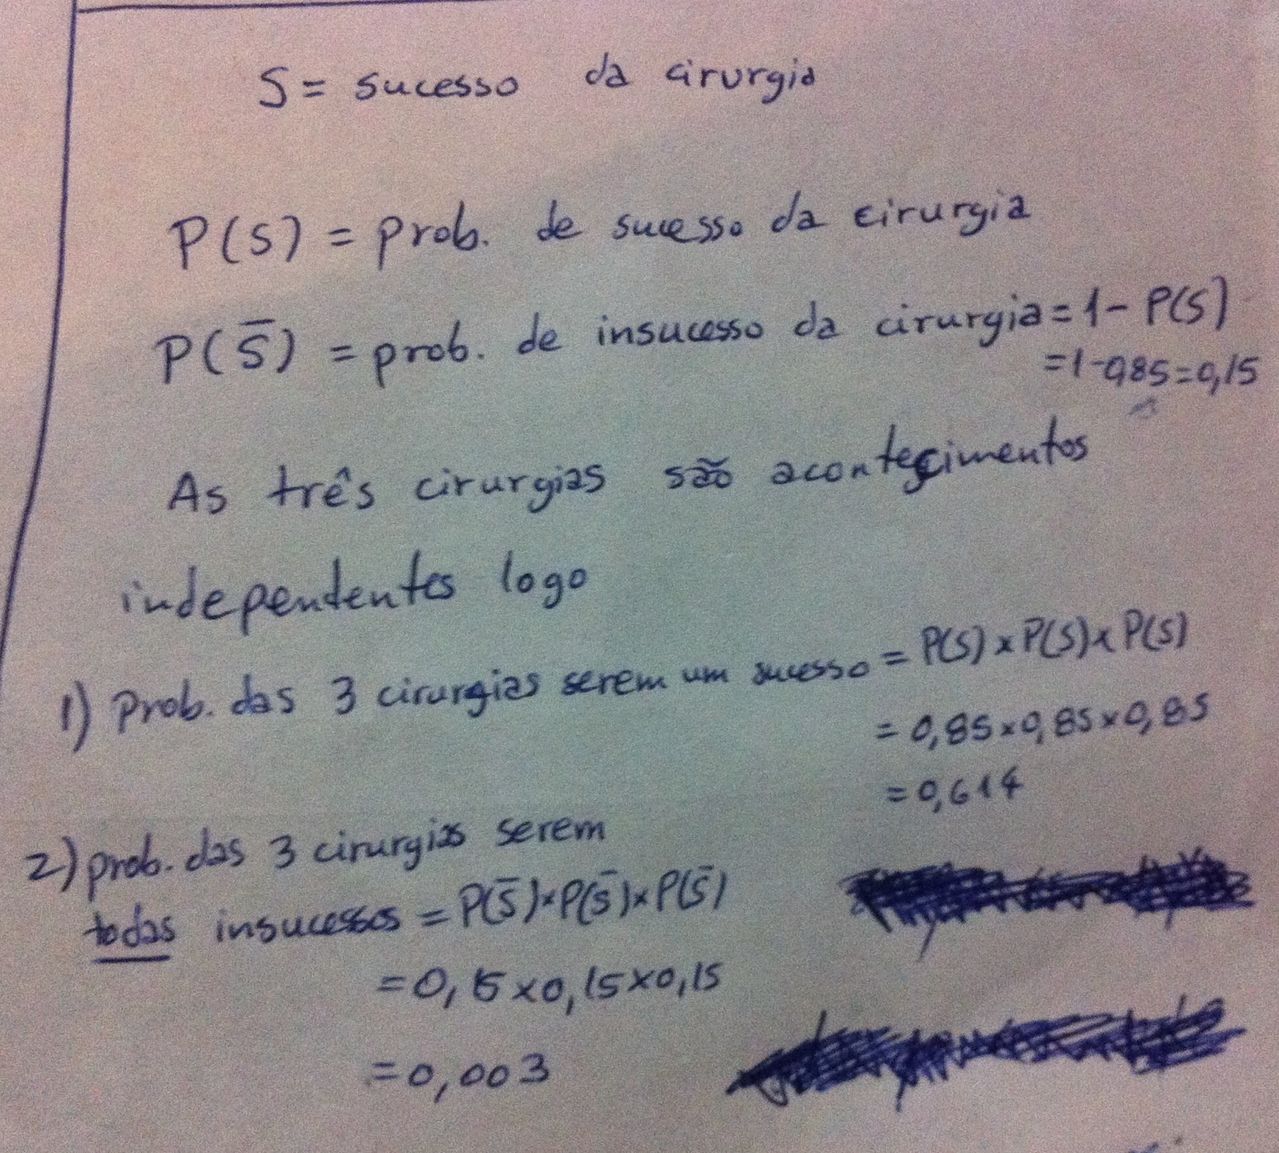 S = sucesso da cirurgia
P(S) = prob. de sucesso da cirurgia
P(S̅) = prob. de insucesso da cirurgia = 1 - P(S)
= 1 - 0,85 = 0,15
As três cirurgias são acontecimentos
independentes logo
1) Prob. das 3 cirurgias serem um sucesso = P(S) x P(S) x P(S)
= 0,85 x 0,85 x 0,85
= 0,614
2) prob. das 3 cirurgias serem
todas insucessos = P(S̅) x P(S̅) x P(S̅)
= 0,15 x 0,15 x 0,15
= 0,003